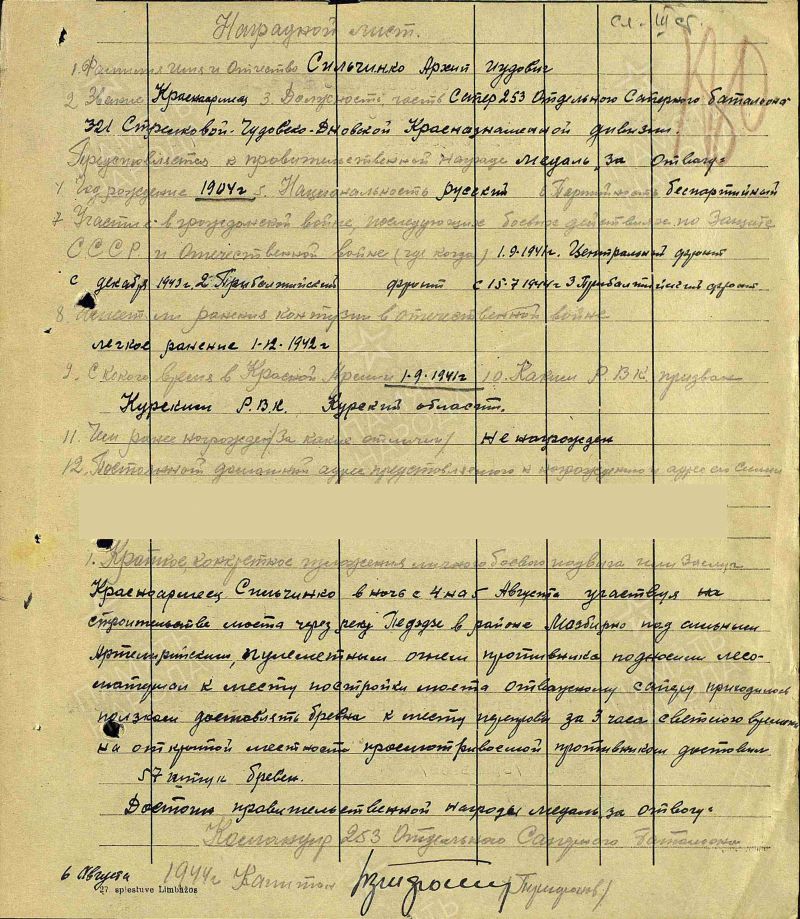 Наградной лист. сл. III ст.
1. Фамилия Имя и Отчество Сильчинко Архип Иудович
2. Звание Красноармеец 3. Должность, часть Сапер 253 Отдельного Саперного батальона
321 Стрелковой-Чудовско-Дновской Краснознаменной дивизии.
Представляется к правительственной награде медаль „за отвагу"
4 Год рождение 1904 г 5. Национальность русский 6 Партийность беспартийный
7 Участие в гражданской войне, последующих боевых действиях по Защите
СССР и Отечественной войне (где когда) 1.9-1941г. Центральный фронт
с декабря 1943 г. 2 Прибалтийский фронт с 15-7 1944 г 3 Прибалтийский фронт
8. Имеет ли ранения контузии в отечественной войне
легкое ранение 1-12-1942 г
9. С какого время в Красной Армии 1-9-1941г 10. Каким Р.В.К. призван
Курским Р.В.К. Курский области.
11. Чем ранее награжден /За какие отличия/ Не награжден
12. Постоянной домашной адрес представляемого к награждению и адрес его семьи
1. Краткое, конкретное изложения личного боевого подвига или заслуг
Красноармеец Сильчинко в ночь с 4 на 5 Августа участвуя на
строительстве моста через реку Педэдзе в района Мазбирно под сильным
Артелирийским, пулеметным огнем противника подносил лесо-
материал к месту постройки моста отважному саперу приходилось
ползком доставлять бревна к месту перепровы за 3 часа светлого времени
на открытой местности просмотриваемой противником доставил
57 штук бревен.
Достоин правительственной награды медаль „за отвагу"
Командир 253 Отдельного Саперного батальона
6 Августа 1944г Капитан /Трифонов/
27. spiestuve Limbažos